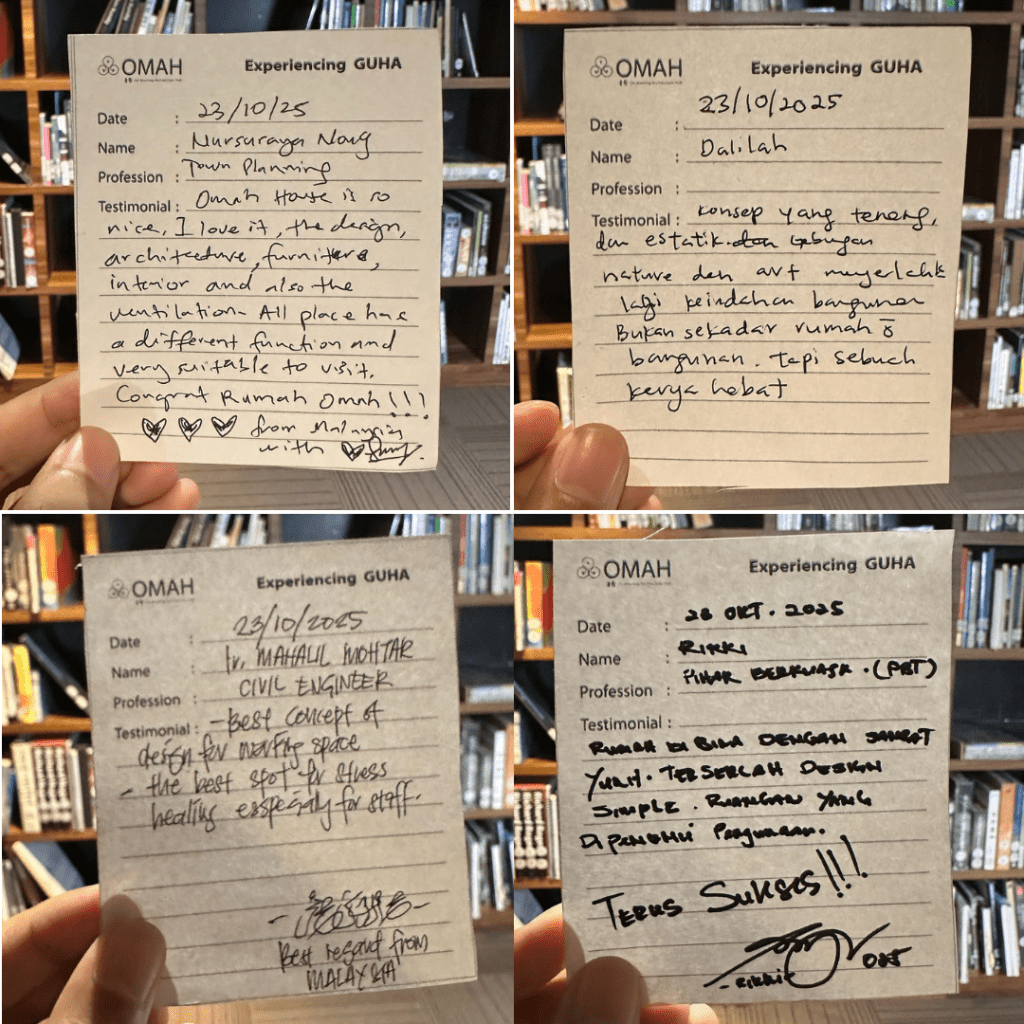 OMAH
Experiencing GUHA
Date : 23/10/25
Name : Nursuraya Nong
Profession : Town Planning
Testimonial : Omah House is so
nice, I love it, the design,
architecture, furniture,
interior and also the
ventilation. All place has
a different function and
very suitable to visit.
Congrat Rumah Omah !!!
from Malaysia
with
OMAH
Experiencing GUHA
Date : 23/10/2025
Name : Dalilah
Profession :
Testimonial : Konsep yang tenang,
dan estatik. dan gabungan
nature dan art menyerlahk
lagi keindahan bangunan
Bukan sekadar rumah
bangunan. tapi sebuah
karya hebat
OMAH
Experiencing GUHA
Date : 23/10/2025
Name : Ir. MAHALIL MOHTAR
Profession : CIVIL ENGINEER
Testimonial : - Best concept of
design for working space
- the best spot for stress
healing esspecialy for staff.
Best regard from
MALAYSIA
OMAH
Experiencing GUHA
Date : 28 OKT. 2025
Name : RIKKI
Profession : PIHAK BERKUASA . (PBT)
Testimonial :
RUMAH DI BINA DENGAN SANGAT
DESIGN
SIMPLE. RUANGAN YANG
DIPENUHI
TERUS SUKSES!!!
RIKKI